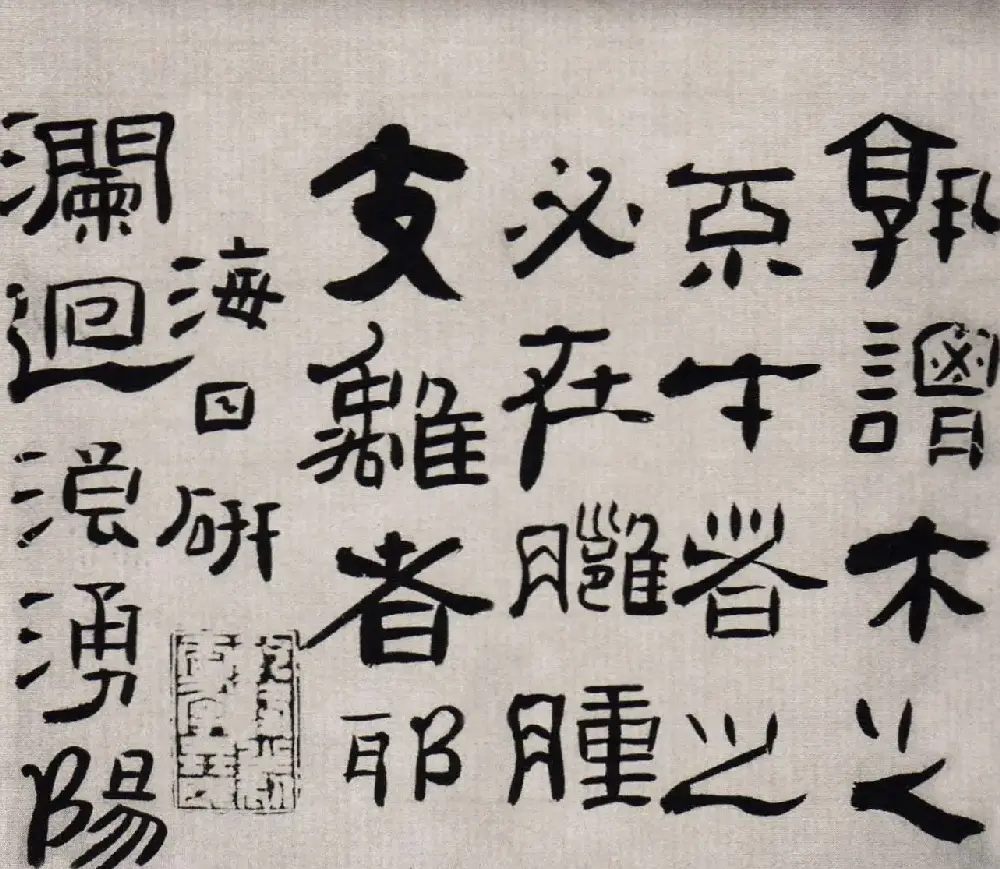 孰謂木之
才者之
必在臃腫
支離者耶
海日研
瀾迴浪湧陽